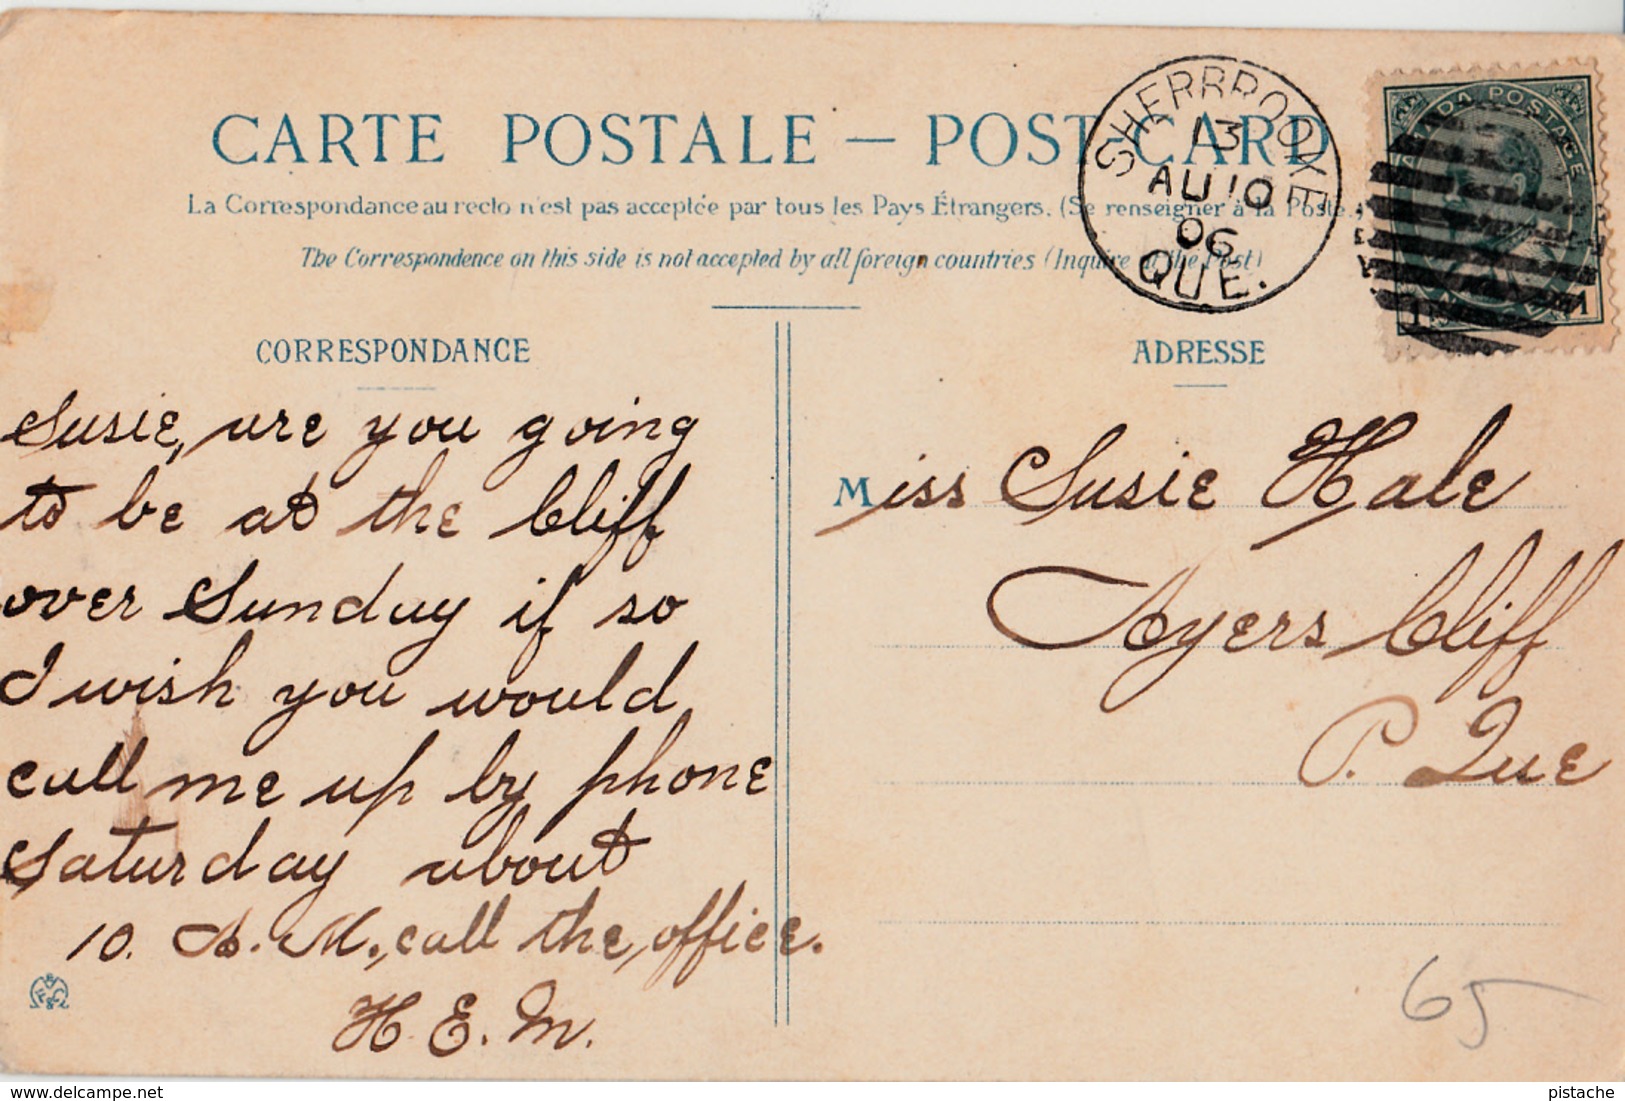 CARTE POSTALE — POST CARD
La Correspondance au recto n'est pas acceptée par tous les Pays Étrangers. (Se renseigner à la Poste.)
The Correspondence on this side is not accepted by all foreign countries (Inquire at the Post)
SHERBROOKE
13
AU 10
06
QUE.
CANADA POSTAGE
1
1
CORRESPONDANCE
Susie, are you going
to be at the Cliff
over Sunday if so
I wish you would
call me up by phone
Saturday about
10. A.M., call the office.
H.E.M.
ADRESSE
Miss Susie Hale
Ayers Cliff
P. Que
65
delcampe.net
pistache